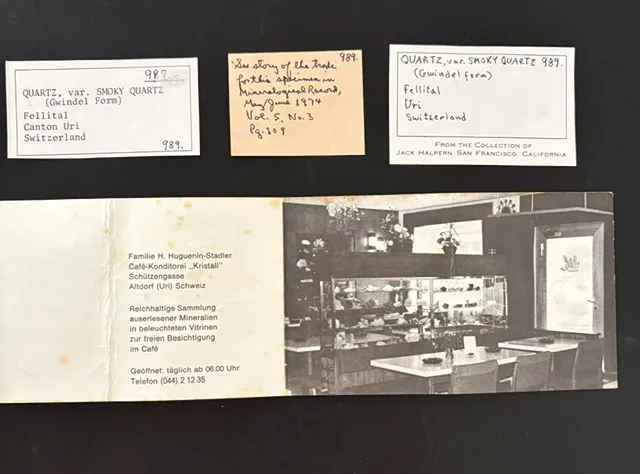 989.
QUARTZ, var. SMOKY QUARTZ
(Gwindel Form)
Fellital
Canton Uri
Switzerland
989.
989.
"See story of the trade
for this specimen in
Mineralogical Record,
May/June 1974
Vol. 5, No. 3
Pg. 109
QUARTZ, var. SMOKY QUARTZ 989.
(Gwindel form)
Fellital
Uri
Switzerland
FROM THE COLLECTION OF
JACK HALPERN SAN FRANCISCO CALIFORNIA
Familie H. Huguenin-Stadler
Café-Konditorei „Kristall"
Schützengasse
Altdorf (Uri) Schweiz
Reichhaltige Sammlung
auserlesener Mineralien
in beleuchteten Vitrinen
zur freien Besichtigung
im Café
Geöffnet: täglich ab 06.00 Uhr
Telefon (044) 2 12 35